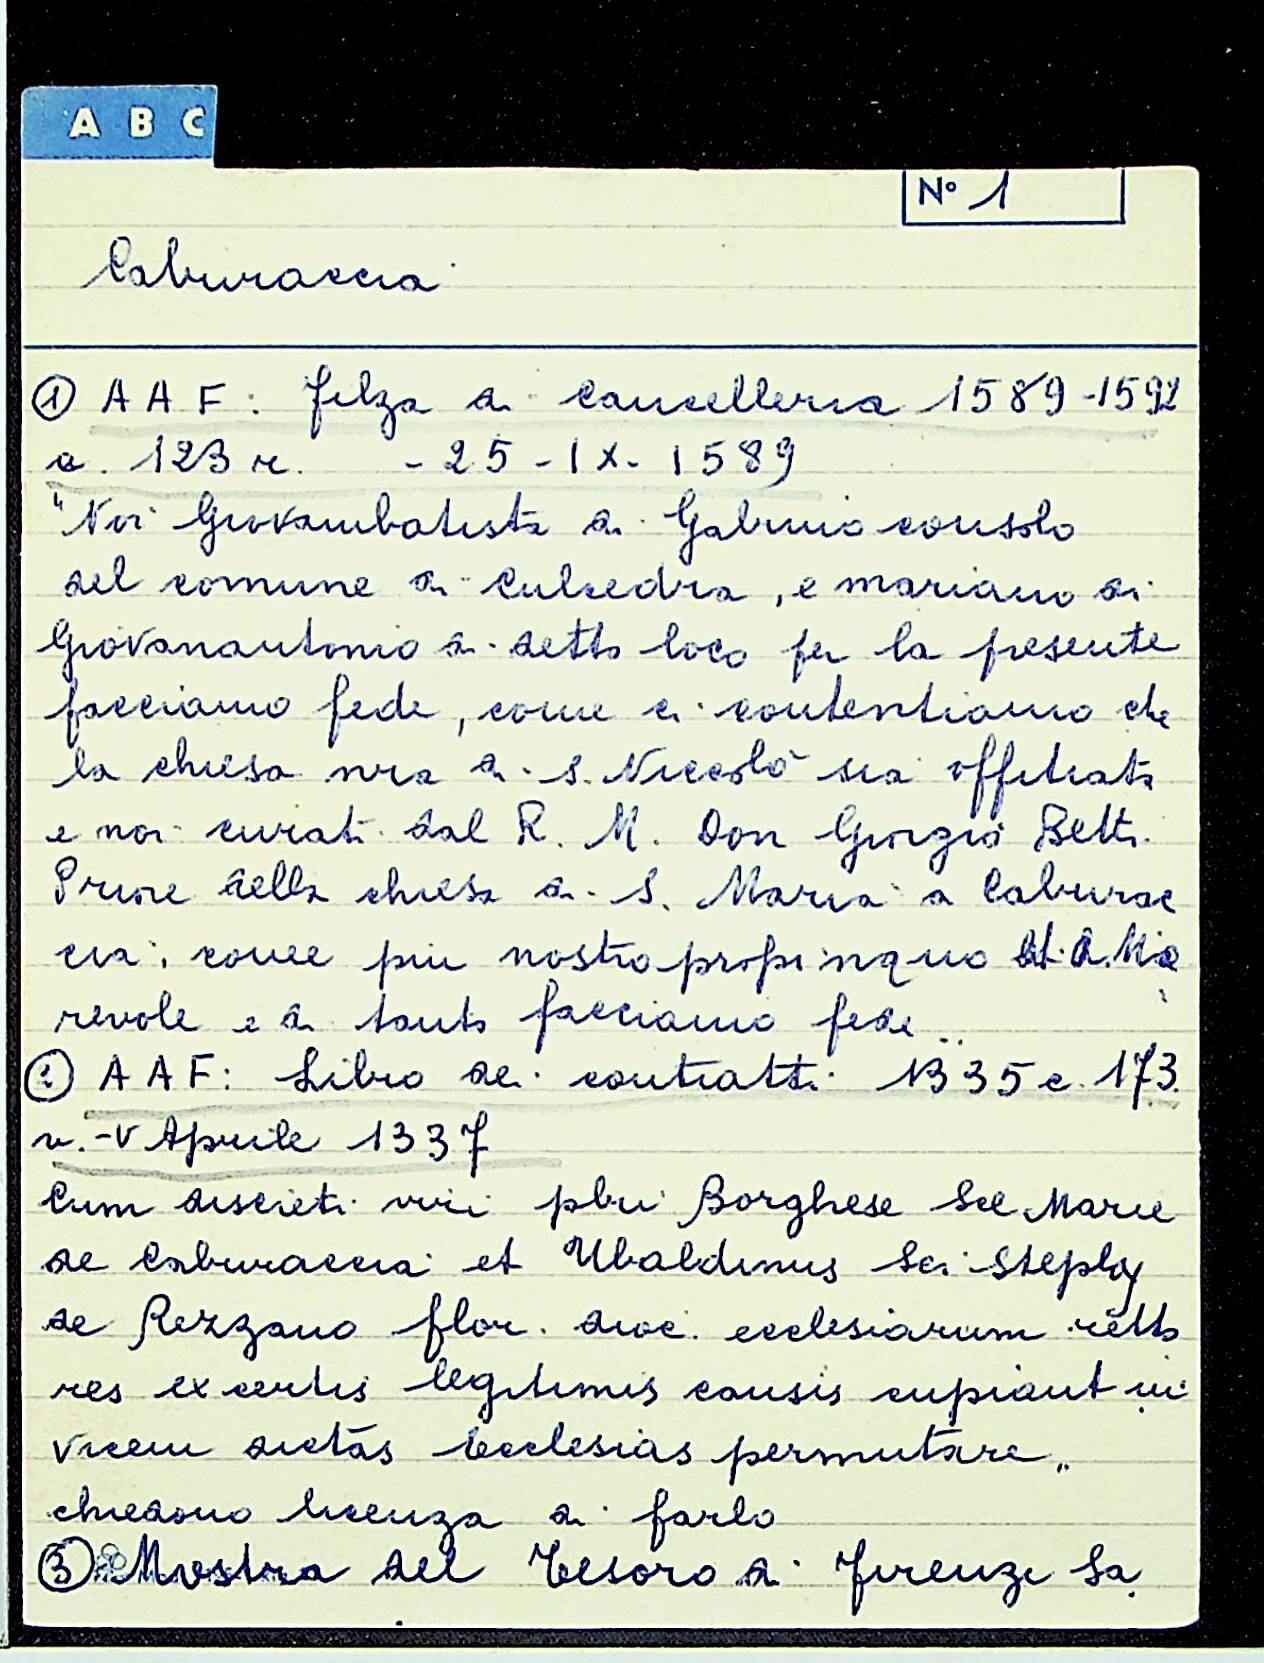 A B C
N° 1
Caburaccia
① AAF: Filza di cancelleria 1589-1592
c. 123 r. - 25-IX-1589
"Noi Giovambatista di Gabrino consolo
del comune di Culcedra, e mariano di
Giovanantonio di detto loco per la presente
facciamo fede, come ci contentiamo che
la chiesa nra di S. Niccolò sia offitiata
e noi curati dal R. M. Don Giorgio Betti
Priore della chiesa di S. Maria a Caburac
cia, come più nostro propinquo
revole e di tanto facciamo fede"
② AAF: Libro dei contratti 1335 c. 173
v. - V Aprile 1337
Cum discreti viri pbri Borghese Sce Marie
de Caburaccia et Ubaldinus Sci Stephy
de Rezzano flor. dioc. ecclesiarum retto
res ex certis legitimis causis cupiant in
vicem dictas ecclesias permutare"
chiedono licenza di farlo
③ Mostra del Tesoro di Firenze Sa